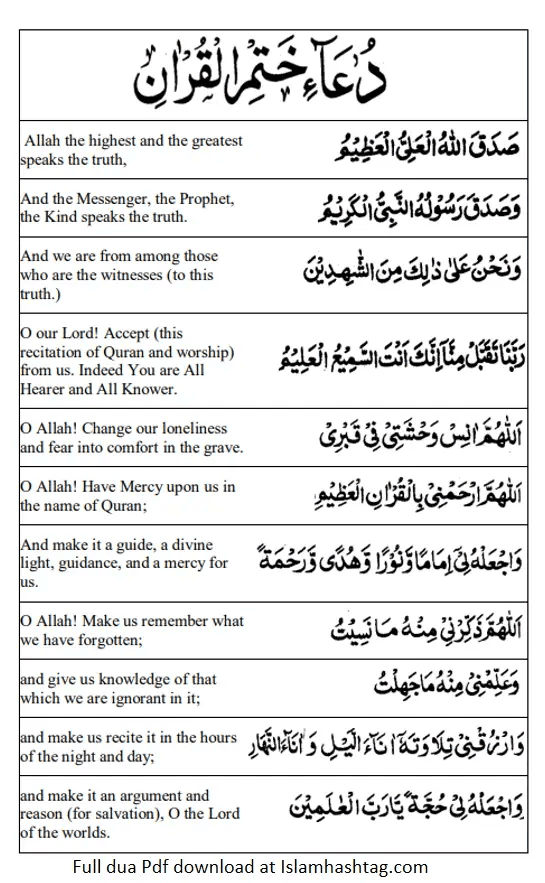 دُعَآءِ خَتْمِ الْقُرْاٰنِ
Allah the highest and the greatest
speaks the truth,
صَدَقَ اللهُ الْعَلِيُّ الْعَظِيْمُ
And the Messenger, the Prophet,
the Kind speaks the truth.
وَصَدَقَ رَسُوْلُهُ النَّبِيُّ الْكَرِيْمُ
And we are from among those
who are the witnesses (to this
truth.)
وَنَحْنُ عَلٰى ذٰلِكَ مِنَ الشّٰهِدِيْنَ
O our Lord! Accept (this
recitation of Quran and worship)
from us. Indeed You are All
Hearer and All Knower.
رَبَّنَا تَقَبَّلْ مِنَّآ اِنَّكَ اَنْتَ السَّمِيْعُ الْعَلِيْمُ
O Allah! Change our loneliness
and fear into comfort in the grave.
اَللّٰهُمَّ اٰنِسْ وَحْشَتِيْ فِيْ قَبْرِيْ
O Allah! Have Mercy upon us in
the name of Quran;
اَللّٰهُمَّ ارْحَمْنِيْ بِالْقُرْاٰنِ الْعَظِيْمِ
And make it a guide, a divine
light, guidance, and a mercy for
us.
وَاجْعَلْهُ لِيْٓ اِمَامًا وَّنُوْرًا وَّهُدًى وَّرَحْمَةً
O Allah! Make us remember what
we have forgotten;
اَللّٰهُمَّ ذَكِّرْنِيْ مِنْهُ مَا نَسِيْتُ
and give us knowledge of that
which we are ignorant in it;
وَعَلِّمْنِيْ مِنْهُ مَا جَهِلْتُ
and make us recite it in the hours
of the night and day;
وَارْزُقْنِيْ تِلَاوَتَهٗٓ اٰنَآءَ الَّيْلِ وَاٰنَآءَ النَّهَارِ
and make it an argument and
reason (for salvation), O the Lord
of the worlds.
وَاجْعَلْهُ لِيْ حُجَّةً يَّارَبَّ الْعٰلَمِيْنَ
Full dua Pdf download at Islamhashtag.com